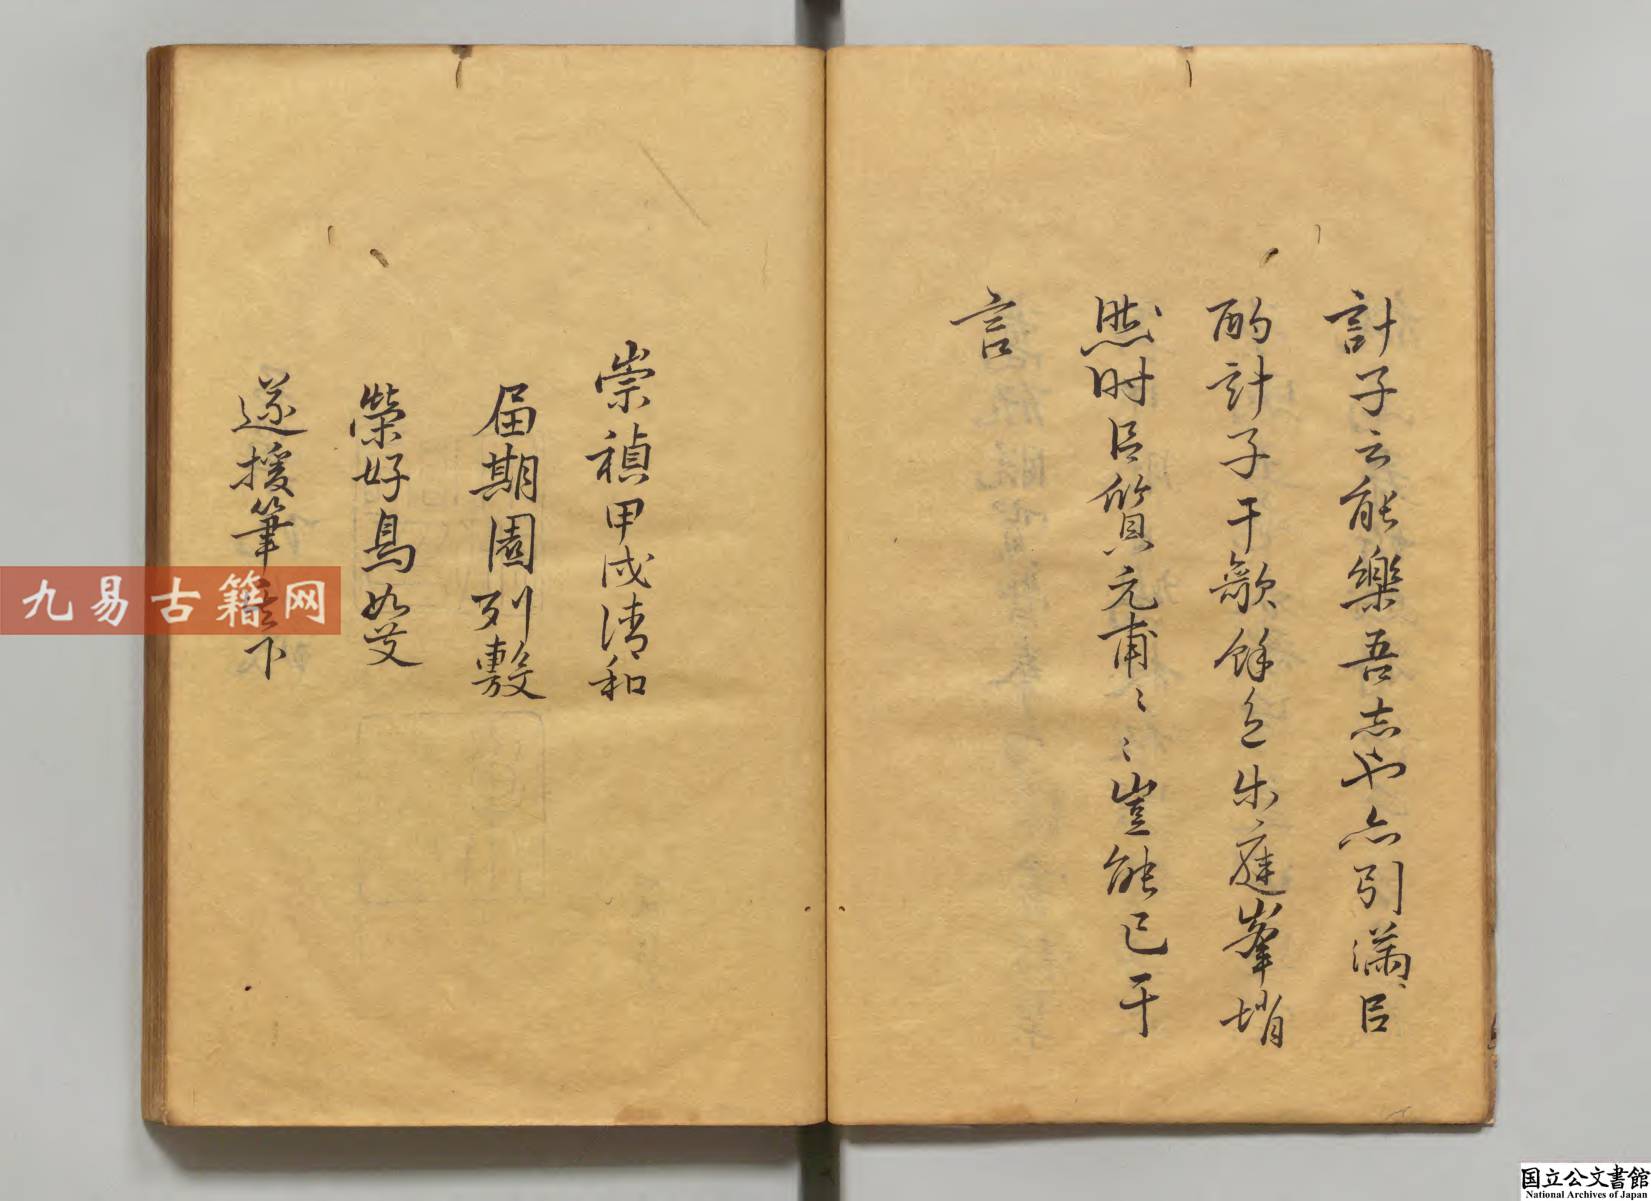 計子之能樂吾志也亦引滿㠯
酌計子于歌餘月出庭峯悄
然时㠯質元甫〻〻豈能已于
言
崇禎甲戌清和
届期園列敷
榮好鳥如友
遂援筆其下
九易古籍网
国立公文書館
National Archives of Japan